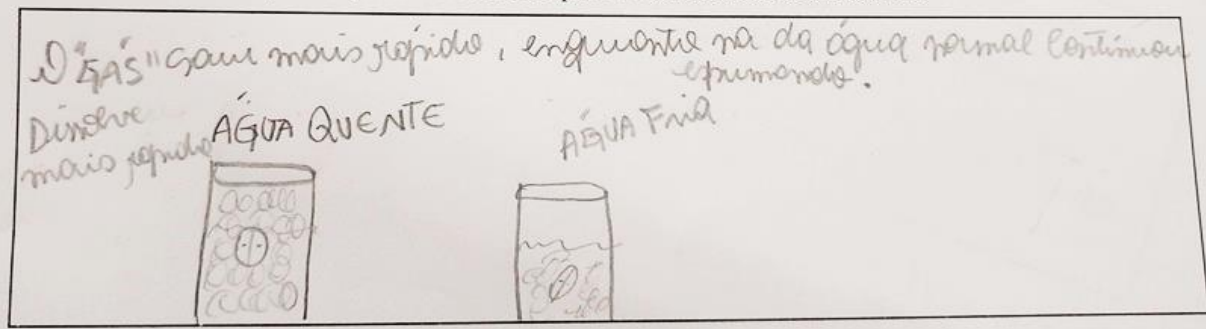 O "GÁS" saiu mais rápido, enquanto na da água normal continuou
espumando.
Dissolve
mais rápido
ÁGUA QUENTE
ÁGUA Fria